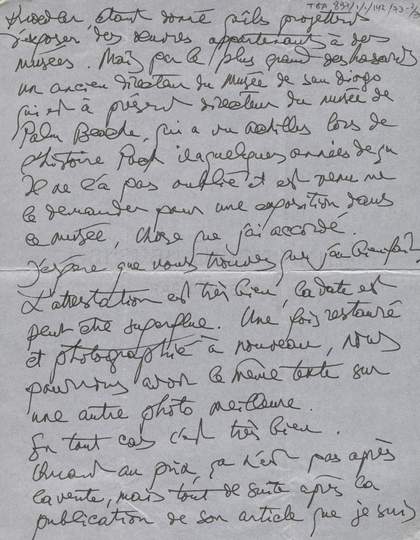 Knoedler étant donné qu'ils projettent
d'exposer des œuvres appartenant à des
musées. Mais par le plus grand des hasards
un ancien directeur du Musée de San Diego
qui est à présent directeur du musée de
Palm Beach, qui a vu Achilles lors de
l'histoire Poch il a quelques années de ça
Il ne l'a pas oublié et est venu me
le demander pour une exposition dans
ce musée, chose que j'ai accordé.
J'espère que vous trouvez que j'ai bien fait?
L'attestation est très bien, la date est
peut être superflue. Une fois restauré
et photographié à nouveau, nous
pourrons avoir le même texte sur
une autre photo meilleure.
En tout cas c'est très bien.
Quant au prix, ça n'est pas après
la vente, mais tout de suite après la
publication de son article que je suis